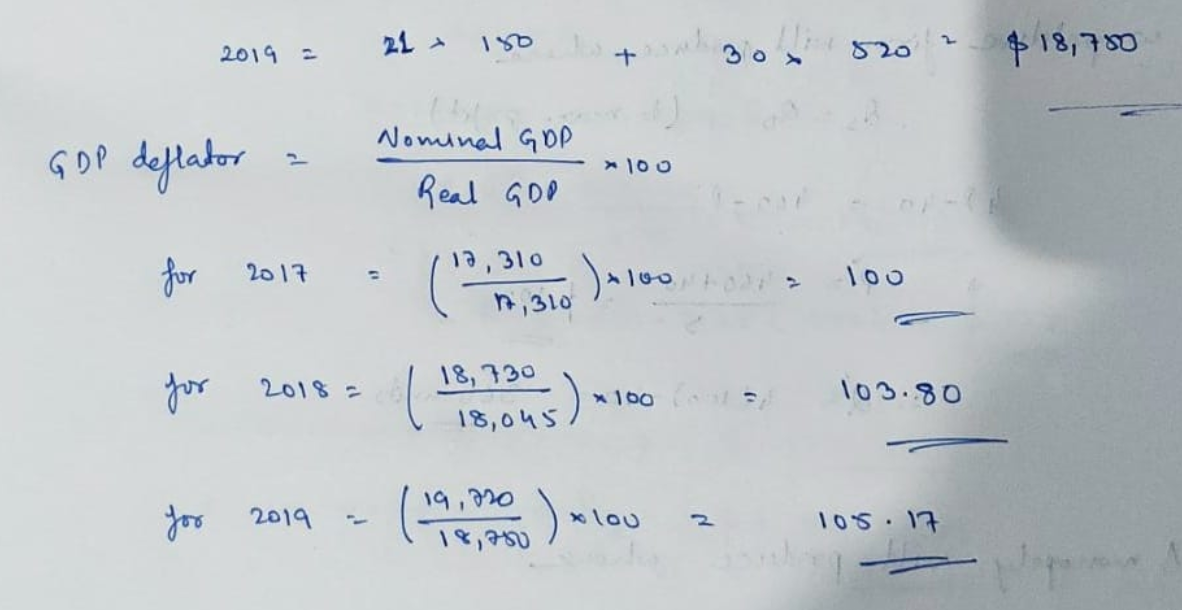 2019 = 21 × 150 + 30 × 520 = $ 18,750
GDP deflator = Nominal GDP / Real GDP × 100
for 2017 = (17,310 / 17,310) × 100 = 100
for 2018 = (18,730 / 18,045) × 100 = 103.80
for 2019 = (19,720 / 18,750) × 100 = 105.17